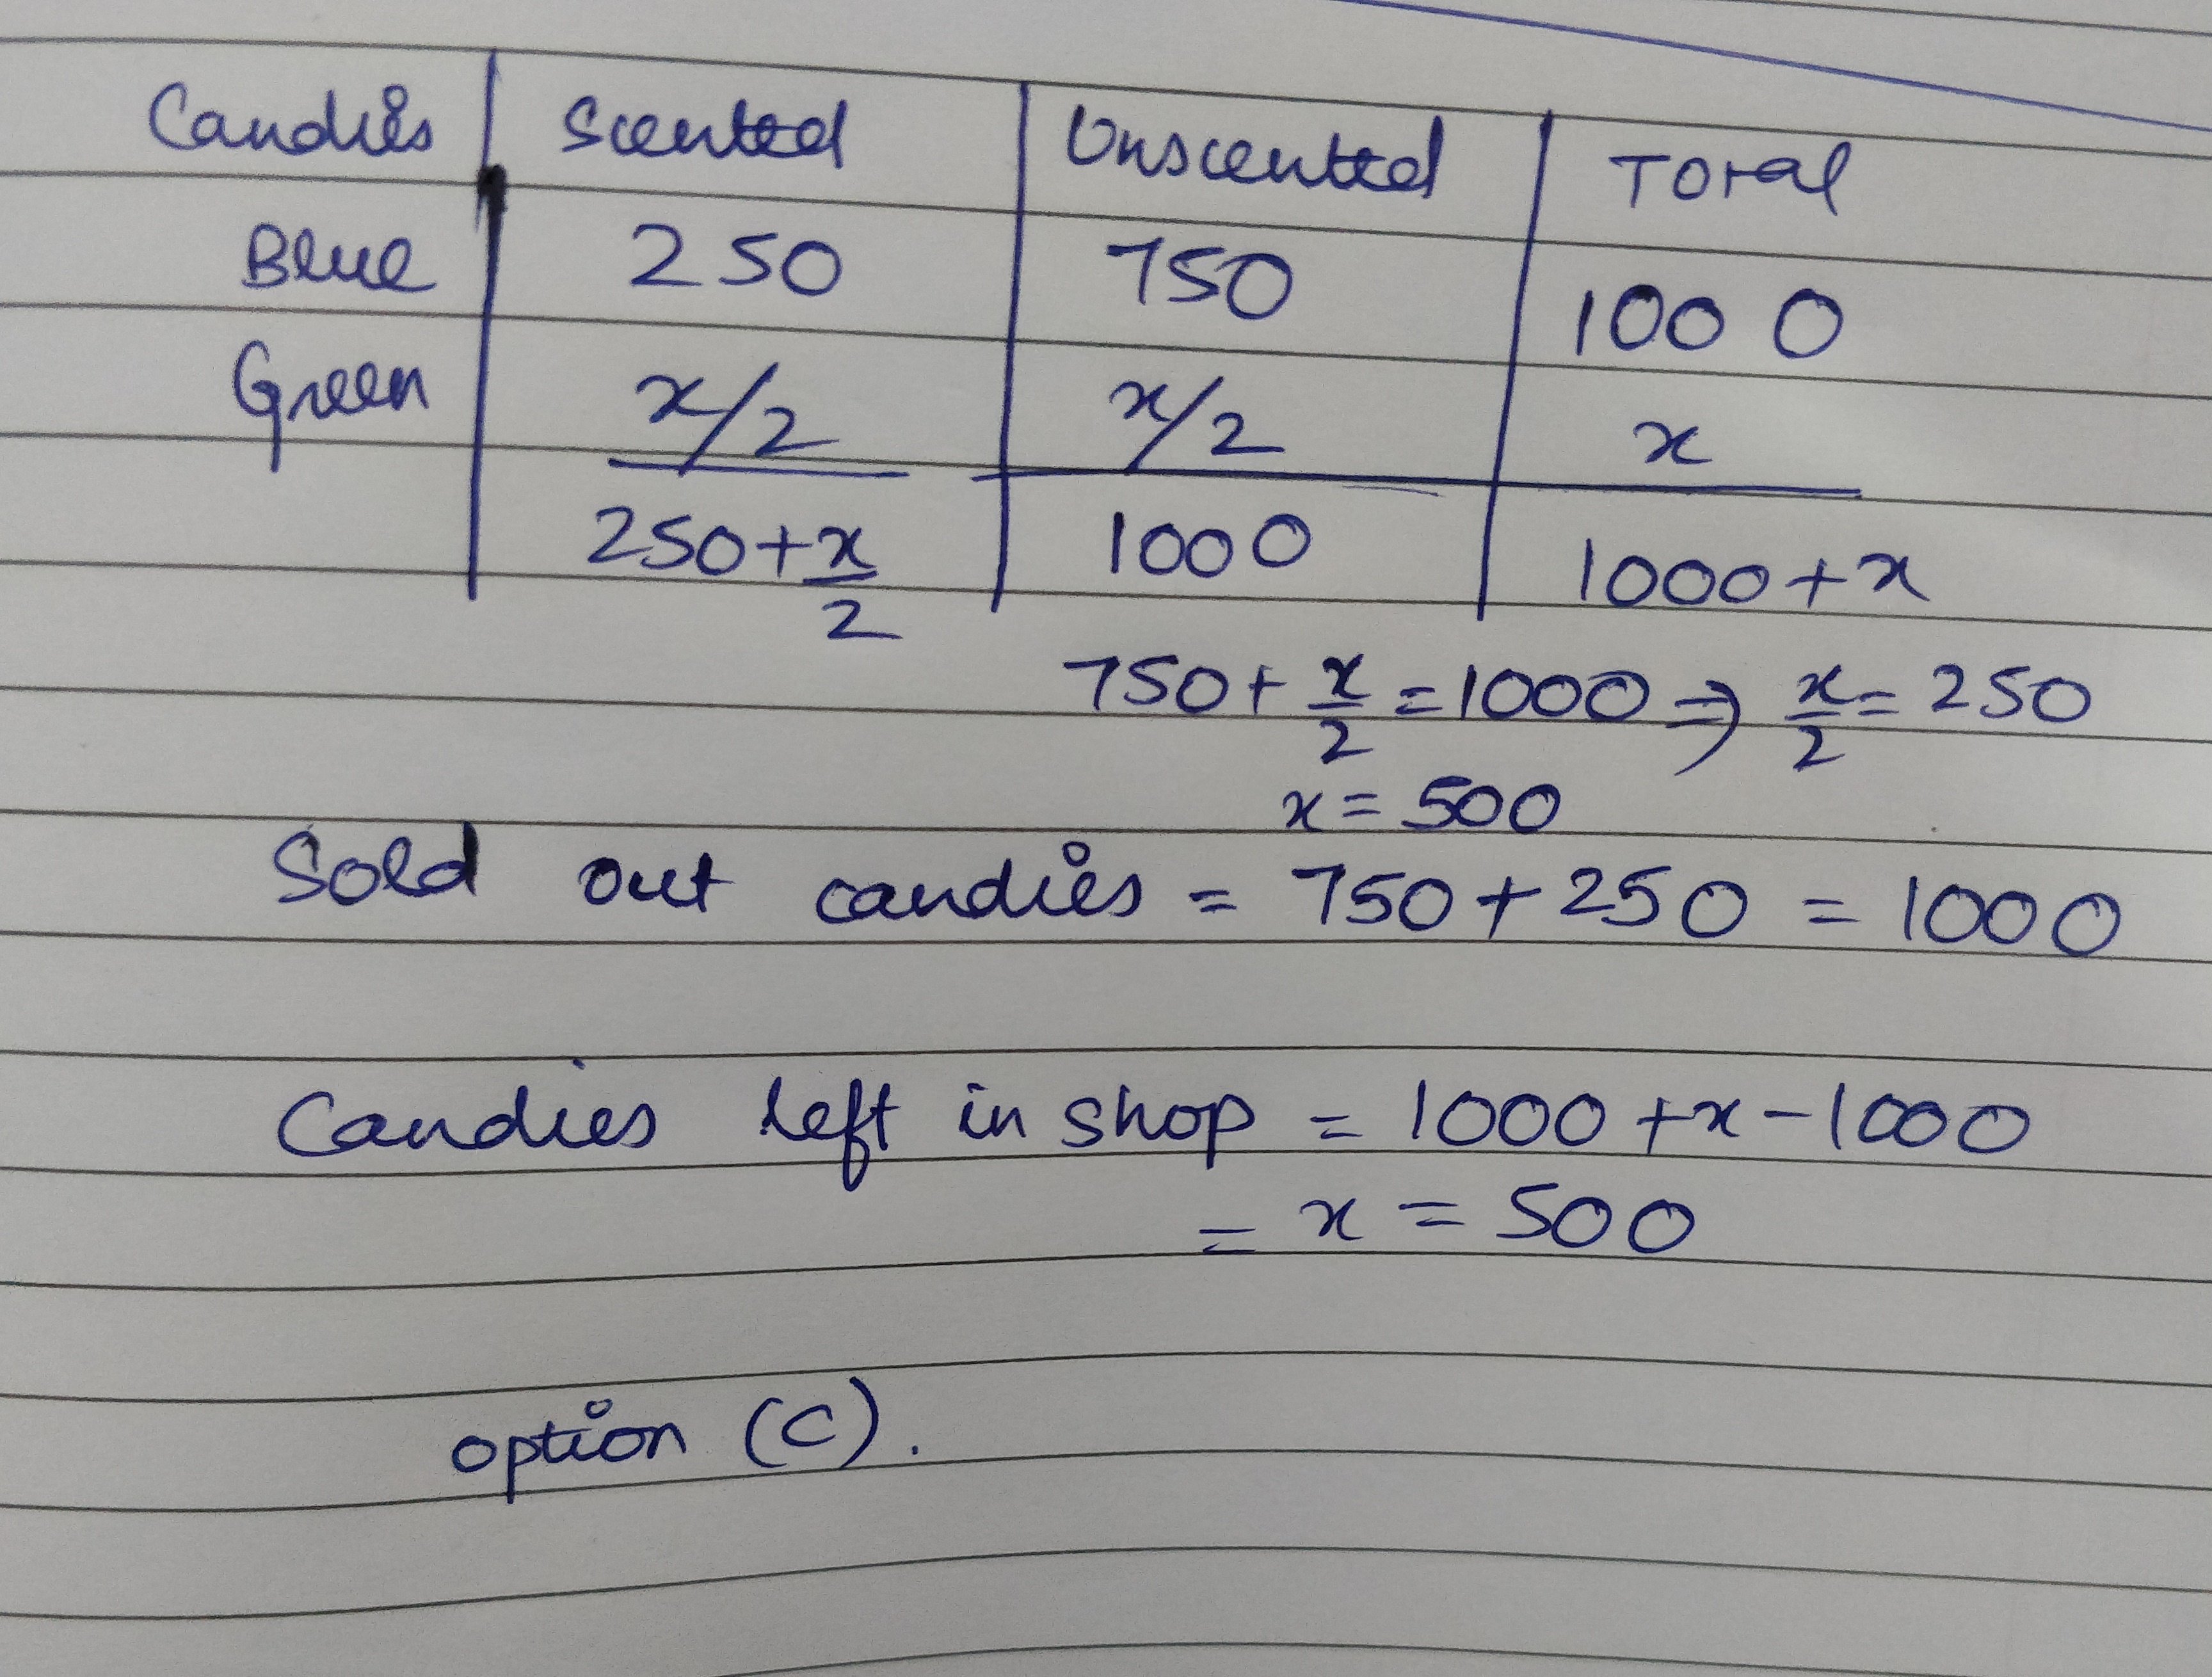 Candies Scented Unscented Total
Blue 250 750 1000
Green x/2 x/2 x
250+x/2 1000 1000+x
750+x/2=1000⇒x/2=250
x=500
Sold out candies = 750+250 = 1000
Candies left in shop = 1000+x-1000
= x = 500
option (C).